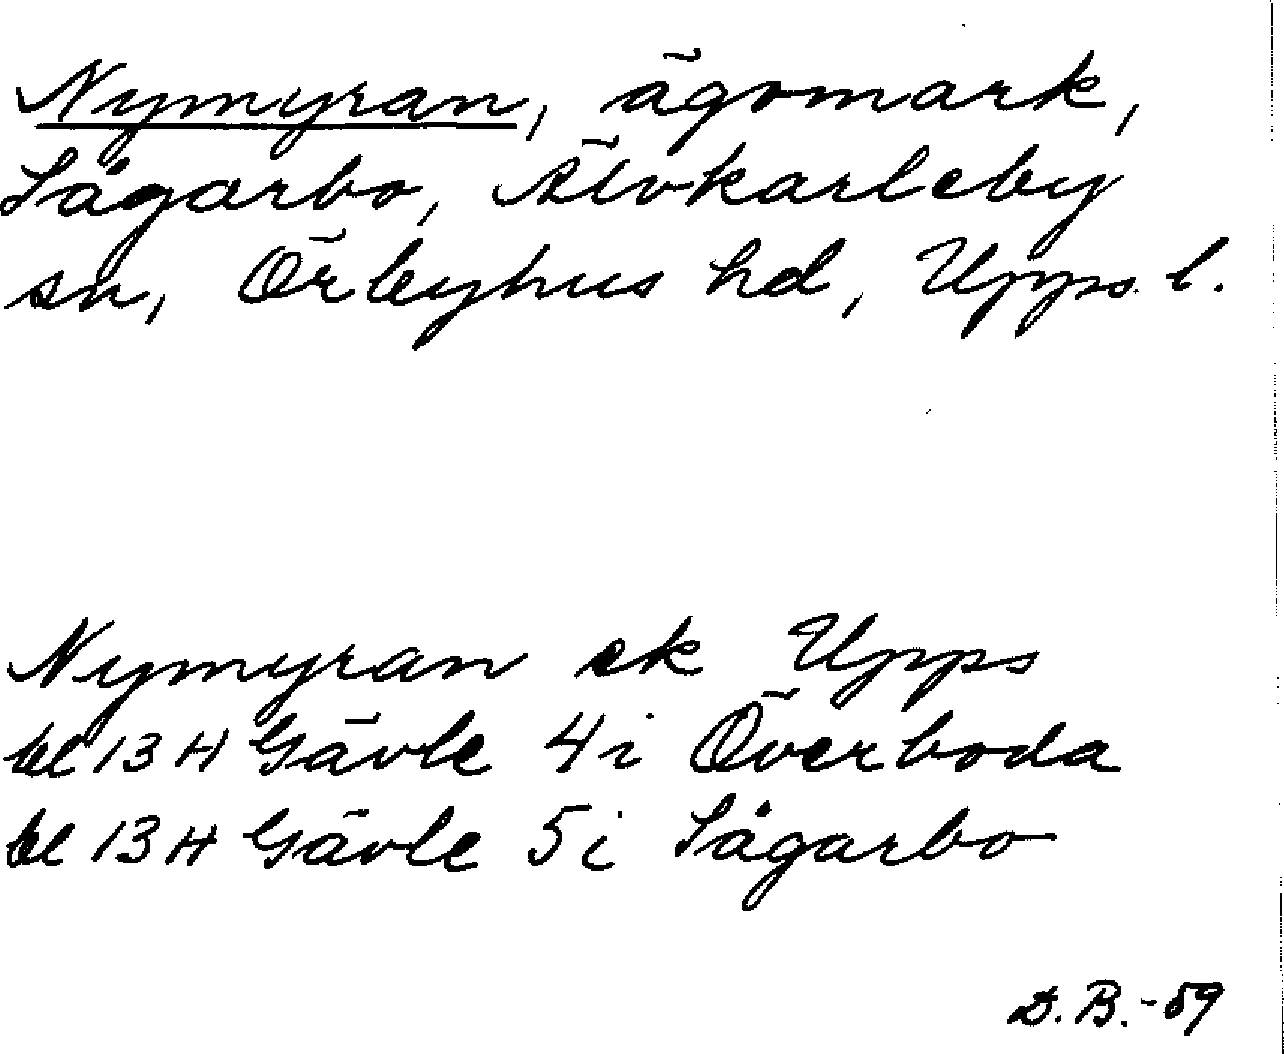 Nymyran, ägomark,
Sågarbo, Älvkarleby
sn, Örbyhus hd, Upps. l.
Nymyran ek Upps
bl 13 H Gävle 4i Överboda
bl 13 H Gävle 5i Sågarbo
D.B.-59